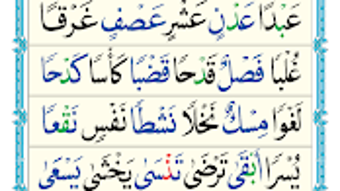 عَبْدًا عَدْنٍ عَشْرٍ عَصْفٍ غَرْقًا
غُلْبًا فَصْلٌ قَدْحًا قَضْبًا كَأْسًا كَدْحًا
لَغْوًا مِسْكٌ نَخْلًا نَشْطًا نَفْسٍ نَقْعًا
يُسْرًا أَبْقَى تَرْضَى تَنْسَى يَخْشَى يَسْعَى